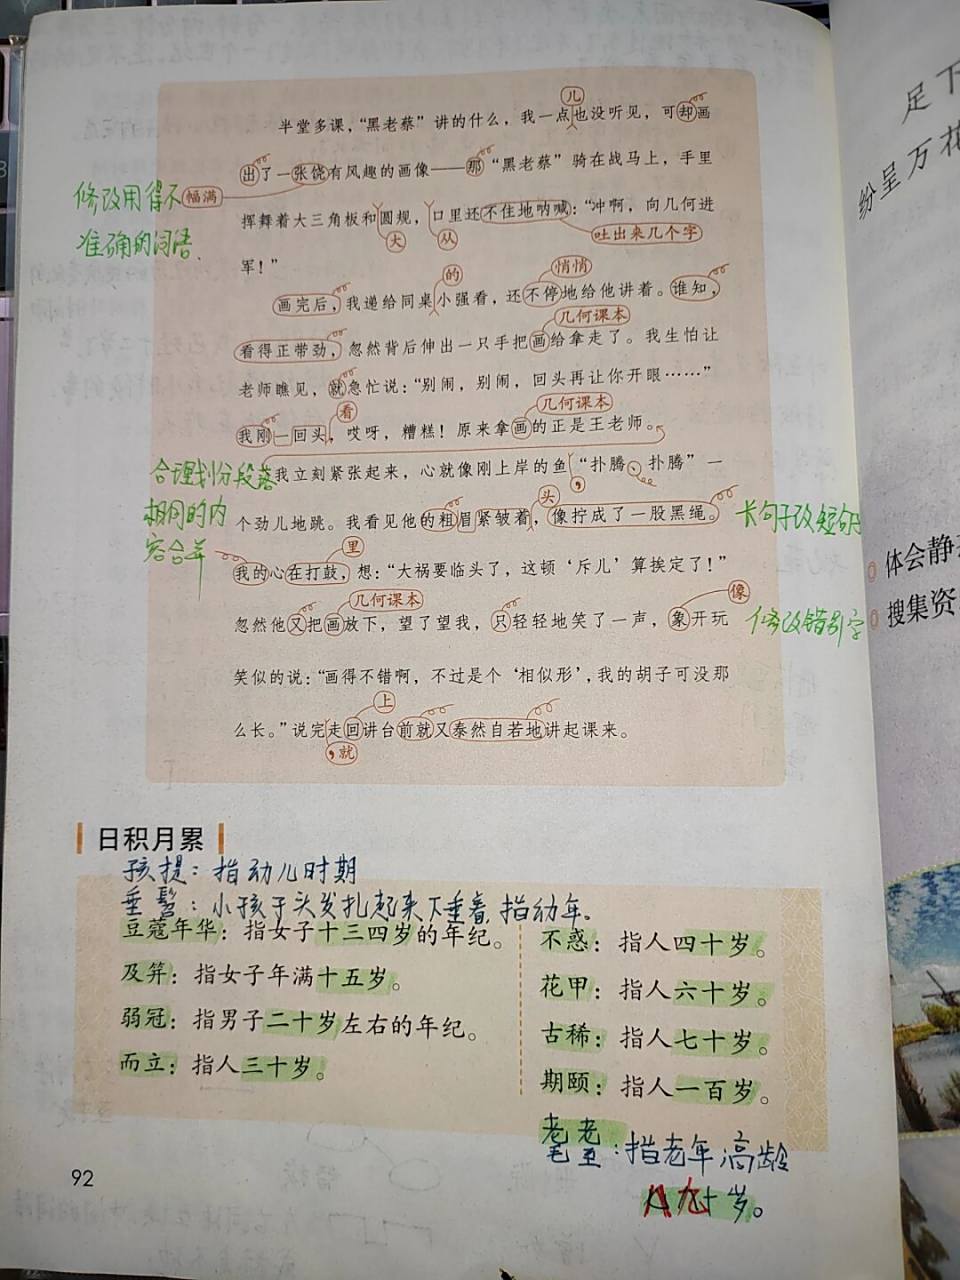 半堂多课，“黑老蔡”讲的什么，我一点也没听见，可却画
儿
出了一张饶有风趣的画像——那“黑老蔡”骑在战马上，手里
幅满
修改用得不
准确的词语.
挥舞着大三角板和圆规，口里还不住地呐喊：“冲啊，向几何进
大
从
吐出来几个字
军！”
的
悄悄
画完后，我递给同桌小强看，还不停地给他讲着。谁知，
几何课本
看得正带劲，忽然背后伸出一只手把画给拿走了。我生怕让
老师瞧见，就急忙说：“别闹，别闹，回头再让你开眼……”
看
几何课本
我刚一回头，哎呀，糟糕！原来拿画的正是王老师。
合理划分段落
相同的内
容合并
我立刻紧张起来，心就像刚上岸的鱼“扑腾、扑腾”一
，
头
个劲儿地跳。我看见他的粗眉紧皱着，像拧成了一股黑绳。
长句子改短句子
里
我的心在打鼓，想：“大祸要临头了，这顿‘斥儿’算挨定了！”
几何课本
像
忽然他又把画放下，望了望我，只轻轻地笑了一声，象开玩
修改错别字
笑似的说：“画得不错啊，不过是个‘相似形’，我的胡子可没那
上
么长。”说完走回讲台前就又泰然自若地讲起课来。
，就
日积月累
孩提：指幼儿时期
垂髫：小孩子头发扎起来下垂着,指幼年。
豆蔻年华：指女子十三四岁的年纪。
及笄：指女子年满十五岁。
弱冠：指男子二十岁左右的年纪。
而立：指人三十岁。
不惑：指人四十岁。
花甲：指人六十岁。
古稀：指人七十岁。
期颐：指人一百岁。
耄耋：指老年高龄
八九十岁。
92
足下
纷呈万花
体会静
搜集资